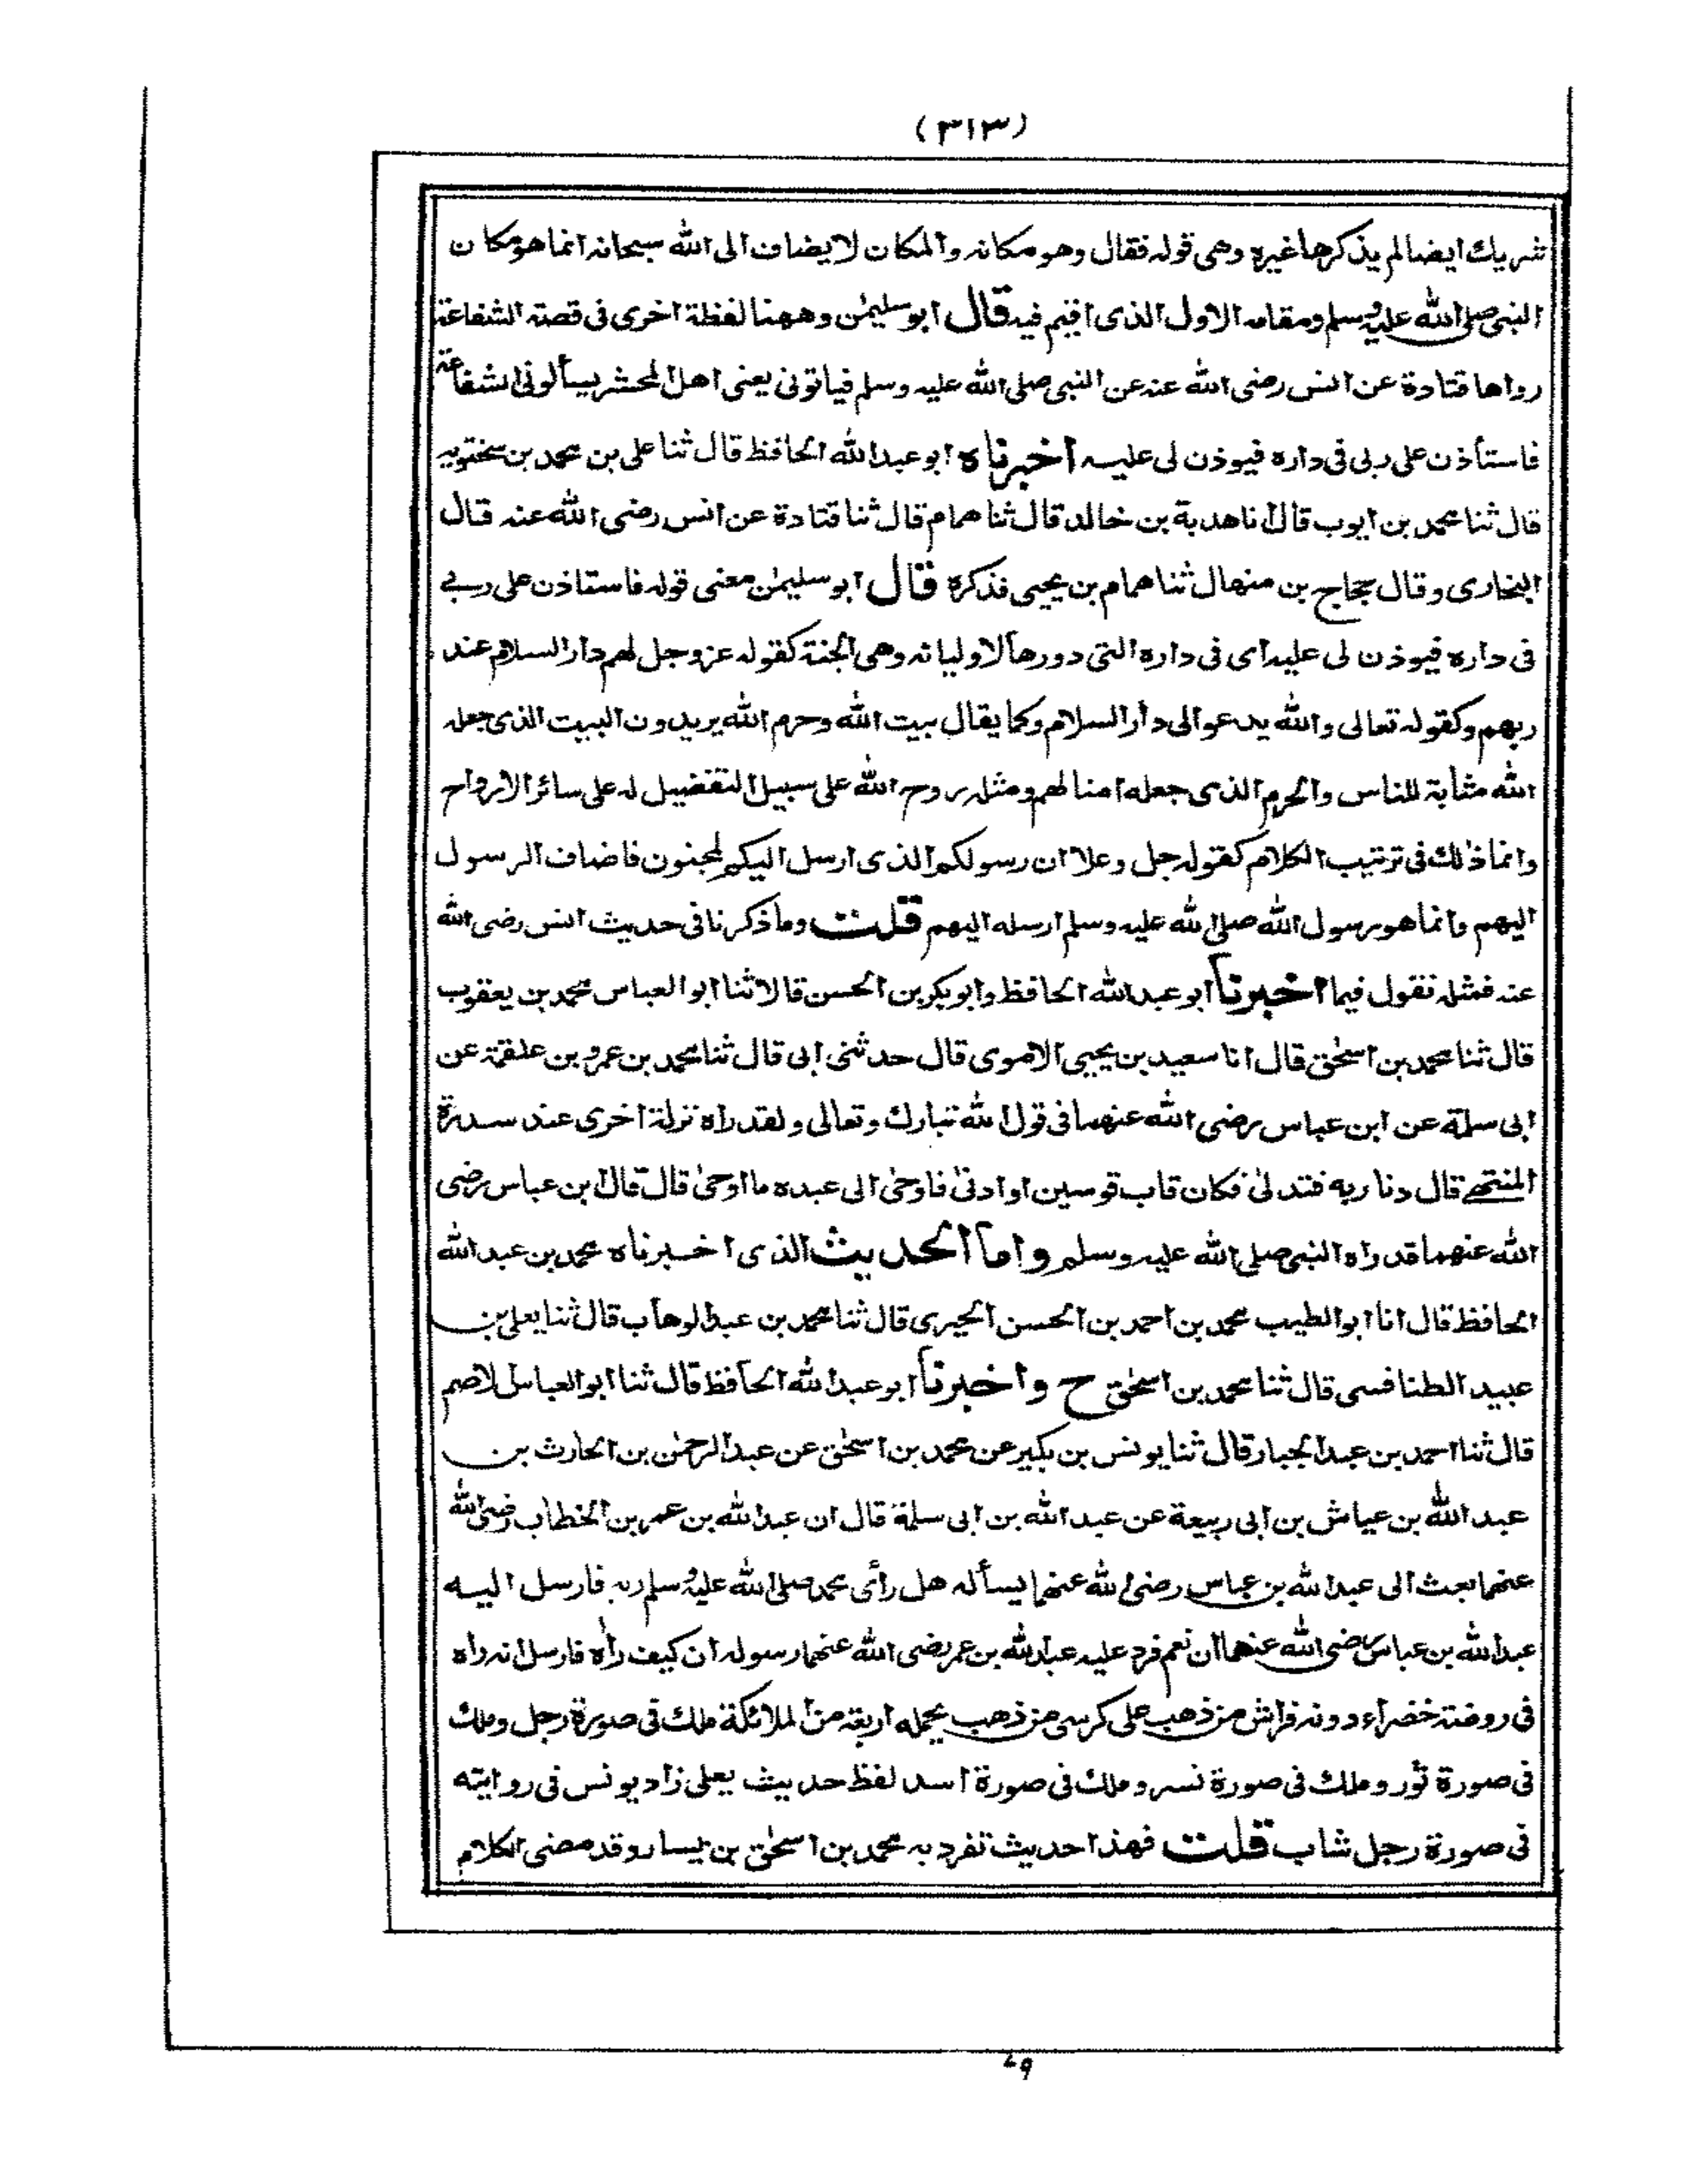 (٣١٣)
شريك ايضا لم يذكرها غيره وهى قوله فقال وهو مكانه والمكان لا يضاف الى الله سبحانه انما هو مكان
النبى صلى الله عليه وسلم ومقامه الاول الذى اقيم فيه قال ابو سليمٰن وههنا لفظة اخرى فى قصة الشفاعة
رواها قتادة عن انس رضى الله عنه عن النبى صلى الله عليه وسلم فياتونى يعنى اهل المحشر يسألونى الشفاعة
فاستأذن على ربى فى داره فيوذن لى عليه اخبرناه ابو عبد الله الحافظ قال ثنا على بن محمد بن سختويه
قال ثنا محمد بن ايوب قال انا هدبة بن خالد قال ثنا همام قال ثنا قتادة عن انس رضى الله عنه قال
البخارى وقال حجاج بن منهال ثنا همام بن يحيى فذكره قال ابو سليمٰن معنى قوله فاستاذن على ربے
فى داره فيوذن لى عليه اى فى داره التى دورها لاوليائه وهى الجنة كقوله عز وجل لهم دار السلام عند
ربهم وكقوله تعالى والله يدعوا لى دار السلام وكما يقال بيت الله وحرم الله يريدون البيت الذى جعله
الله مثابة للناس والحرم الذى جعله امنا لهم ومثله روح الله على سبيل التفضيل له على سائر الارواح
وانما ذٰلك فى ترتيب الكلام كقوله جل وعلا ان رسولكم الذى ارسل اليكم لمجنون فاضاف الرسول
اليهم وانما هو رسول الله صلى الله عليه وسلم ارسله اليهم قلت وما ذكرنا فى حديث انس رضى الله
عنه فمثله نقول فيما اخبرنا ابو عبد الله الحافظ وابو بكر بن الحسن قالا ثنا ابو العباس محمد بن يعقوب
قال ثنا محمد بن اسحٰق قال انا سعيد بن يحيى الاموى قال حدثنى ابى قال ثنا محمد بن عمرو بن علقمة عن
ابى سلمة عن ابن عباس رضى الله عنهما فى قول الله تبارك وتعالى ولقد راه نزلة اخرى عند سدرة
المنتهے قال دنا ربه فتدلىٰ فكان قاب قوسين او ادنىٰ فاوحىٰ الى عبده ما اوحىٰ قال قال ابن عباس رضى
الله عنهما قد راه النبى صلى الله عليه وسلم واما الحديث الذى اخبرناه محمد بن عبد الله
الحافظ قال انا ابو الطيب محمد بن احمد بن الحسن الحيرى قال ثنا محمد بن عبد الوهاب قال ثنا يعلى بن
عبيد الطنافسى قال ثنا محمد بن اسحٰق ح واخبرنا ابو عبد الله الحافظ قال ثنا ابو العباس الاصم
قال ثنا احمد بن عبد الجبار قال ثنا يونس بن بكير عن محمد بن اسحٰق عن عبد الرحمٰن بن الحارث بن
عبد الله بن عياش بن ابى ربيعة عن عبد الله بن ابى سلمة قال ان عبد الله بن عمر بن الخطاب رضى الله
عنهما بعث الى عبد الله بن عباس رضى الله عنهما يسأله هل رأى محمد صلى الله عليه وسلم ربه فارسل اليه
عبد الله بن عباس رضى الله عنهما ان نعم فرد عليه عبد الله بن عمر رضى الله عنهما رسوله ان كيف راه فارسل انه راه
فى روضة خضراء دونه فراش من ذهب على كرسى من ذهب يحمله اربعة من الملائكة ملك فى صورة رجل وملك
فى صورة ثور وملك فى صورة نسر وملك فى صورة اسد لفظ حديث يعلى زاد يونس فى روايته
فى صورة رجل شاب قلت فهذا حديث تفرد به محمد بن اسحٰق بن يسار وقد مضى الكلام